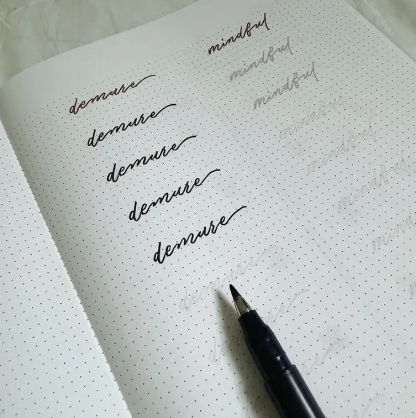 demure
demure
demure
demure
demure
mindful
mindful
mindful